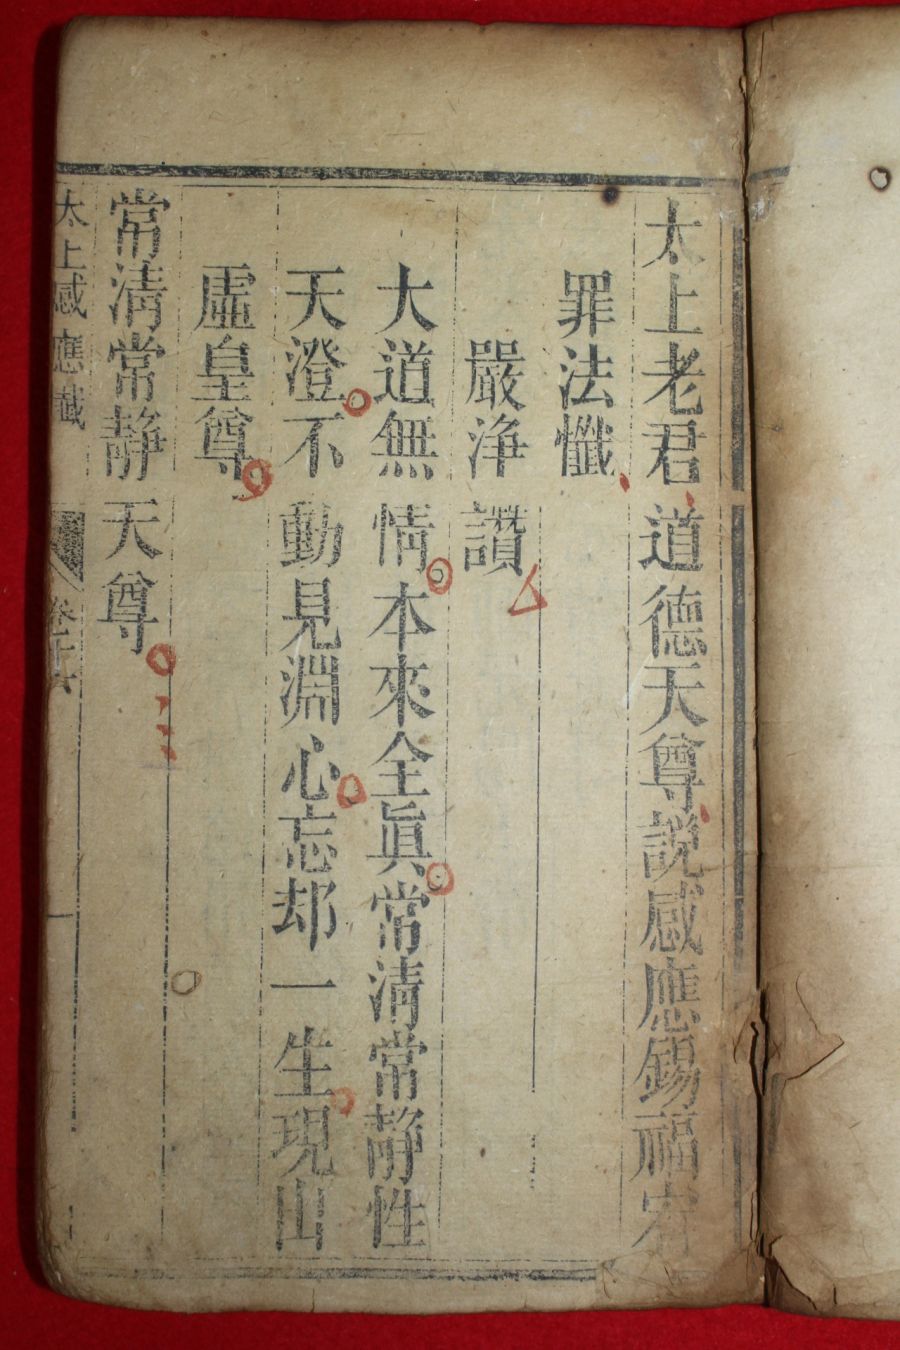 太上老君道德天尊說感應錫福宥
罪法懺
嚴淨讚
大道無情本來全眞常清常静性
天澄不動見淵心忘却一生現出
虛皇尊
常清常静天尊
太上感應懺 卷六 一